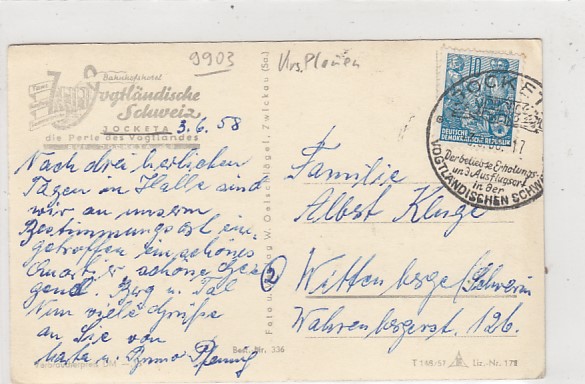 9903
Krs. Plauen
Bahnhofshotel
Vogtländische
Schweiz
JOCKETA
die Perle des Vogtlandes
3.6.58
Nach drei herlichen
Tagen in Halle sind
wir an unserm
Bestimmungsort ein-
getroffen ein schönes
Quartier, schöne Ge-
gend. Berg u. Tal
Nun viele Grüße
an Sie von
Marta u. Bruno Pfennig
Verbraucherpreis DM
Best. Nr. 336
Foto u. Verlag W. Oelschlägel, Zwickau (Sa.)
DEUTSCHE
DEMOKRATISCHE REPUBLIK
JOCKETA
17
Der beliebte Erholungs-
und Ausflugsort
in der
VOGTLÄNDISCHEN SCHWEIZ
Familie
Albert Kluge
2
Wittenberge/Schwerin
Wahrenbergerst. 126.
T 148/57
Liz.-Nr. 178